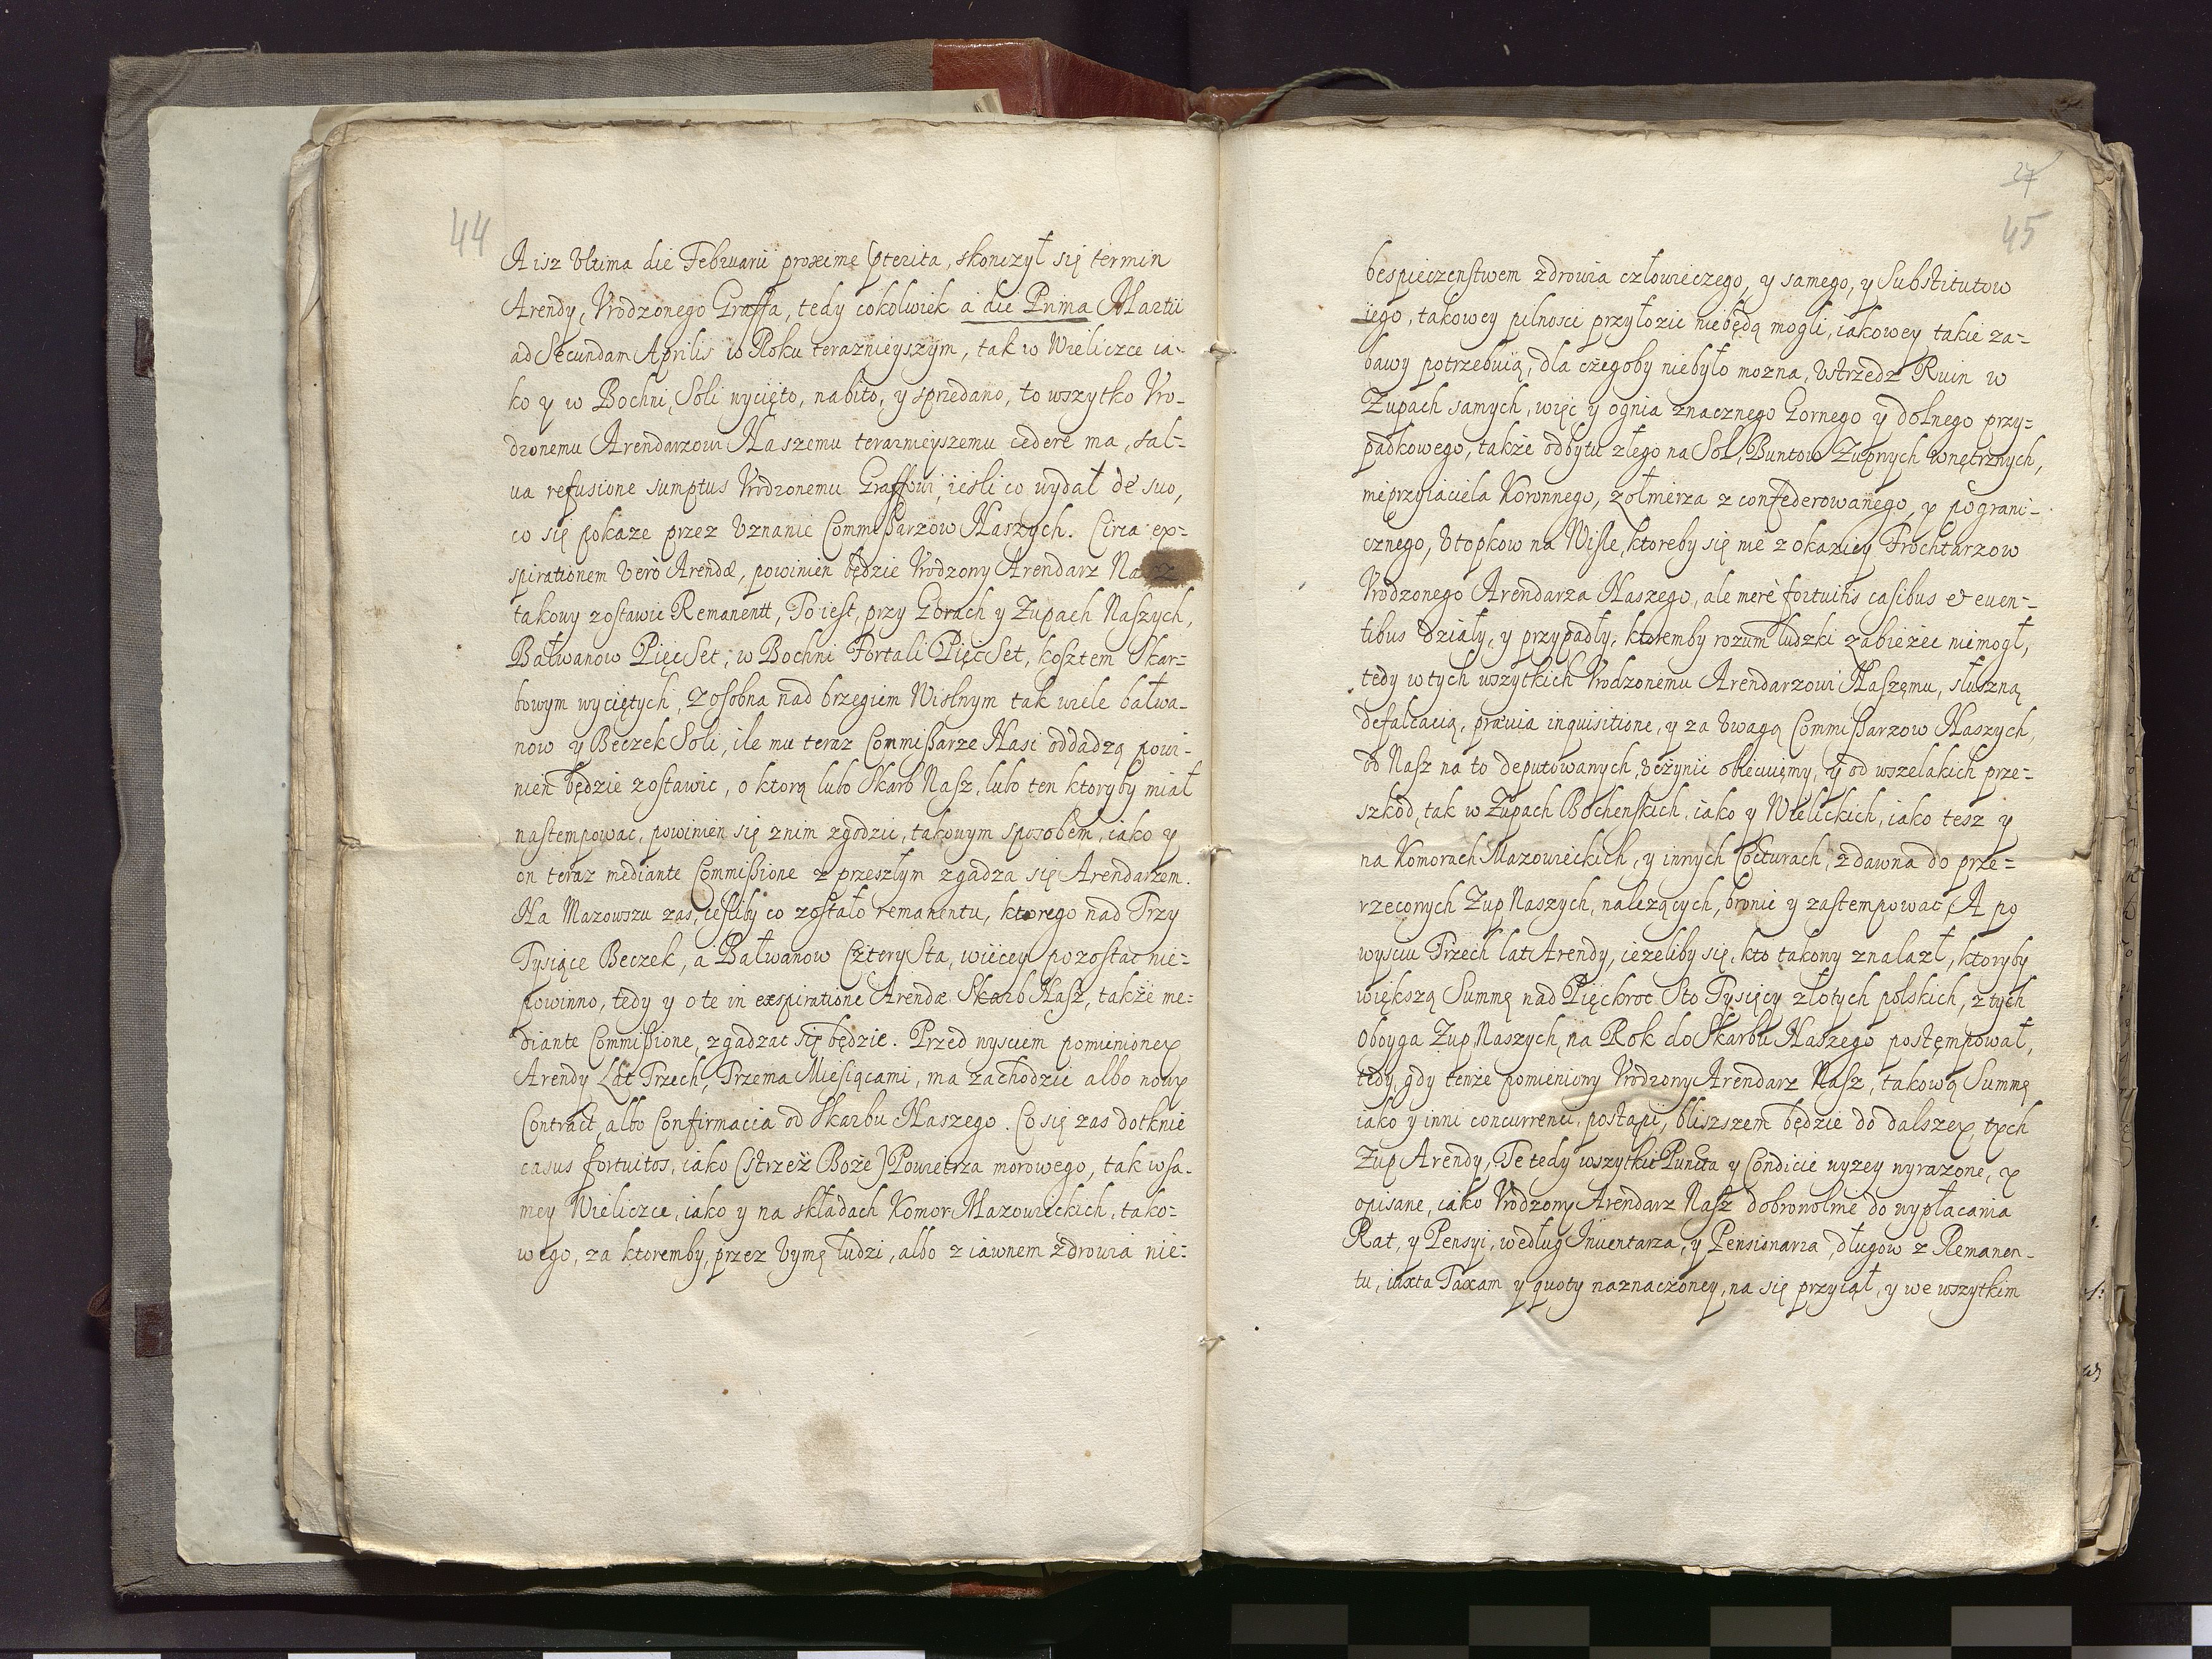 44
A isz Ultima die Februarii proxime pterita, skonczył się termin
Arendy, Vrodzonego Graffa, tedy cokolwiek a die Prima Martii
ad Secundam Aprilis w Roku teraznieyszym, tak w Wieliczce ia-
ko y w Bochni, Soli wycięto, nabito, y sprzedano, to wszytko Vro-
dzonemu Arendarzowi Naszemu teraznieyszemu cedere ma, sal-
va refusione sumptus Vrodzonemu Graffowi, iesli co wydał de suo,
co się pokaze przez Uznanie Commißarzow Naszych. Circa ex-
spirationem vero Arendæ, powinien będzie Vrodzony Arendarz Nasz
takowy zostawic Remanentt, To iest, przy Gorach y Zupach Naszych,
Bałwanow PięcSet, w Bochni Fortali PięcSet, kosztem Skar-
bowym wyciętych, zosobna nad brzegiem Wislnym tak wiele bałwa-
now y Beczek Soli, ile mu teraz Commißarze Nasi oddadzą powi-
nien będzie zostawic, o ktorą lubo Skarb Nasz, lubo ten ktoryby miał
nastempowac, powinien się znim zgodzic, takowym sposobem, iako y
on teraz mediante Commißione z przeszłym zgadza się Arendarzem.
Na Mazowszu zas, iesliby co zostało remanentu, ktorego nad Trzy
Tysiące Beczek, a Bałwanow CzterySta, wiecey pozostac nie-
powinno, tedy y o te in exspiratione Arendæ Skarb Nasz, także me-
diante Commißione, zgadzac się będzie. Przed wysciem pomienioney
Arendy Lat Trzech, Trzema Miesiącami, ma zachodzic albo nowy
Contract, albo Confirmacia od Skarbu Naszego. Co się zas dotknie
casus fortuitos, iako (strzeż Boże) Powietrza morowego, tak wsa-
mey Wieliczce, iako y na składach Komor Mazowieckich, tako-
wego, za ktoremby, przez Uymę ludzi, albo z iawnem zdrowia nie-
27
45
bespieczenstwem zdrowia człowieczego, y samego, y Substitutow
iego, takowey pilnosci przyłozic niebędą mogli, iakowey takie za-
bawy potrzebuią, dla czegoby niebyło mozna, Ustrzedz Ruin w
Zupach samych, więc y ognia znacznego Gornego y dolnego przy-
padkowego, także odbytu złego na Sol, Buntow Zupnych wnętrznych,
nieprzyiaciela Koronnego, zołnierza z confederowanego, y pograni-
cznego, Utopkow na Wisle, ktoreby się nie z okaziey Frochtarzow
Vrodzonego Arendarza Naszego, ale merè fortuitis casibus et even-
tibus działy, y przypadły, ktoremby rozum ludzki zabieżec niemogł,
tedy w tych wszytkich Vrodzonemu Arendarzowi Naszemu, słuszną
defalcacią, prævia inquisitione, y za Uwagą Commißarzow Naszych,
od Nasz na to deputowanych, Uczynic obiecuiemy, y od wszelakich prze-
szkod, tak w Zupach Bochenskich, iako y Wielickich, iako tesz y
na Komorach Mazowieckich, y innych Cocturach, zdawna do prze-
rzeconych Zup Naszych, należących, bronic y zastempowac. A po
wysciu Trzech lat Arendy, ieżeliby się, kto takowy znalazł, ktoryby
większą Summę nad Pięckroc Sto Tysięcy złotych polskich, z tych
oboyga Zup Naszych, na Rok do Skarbu Naszego postęmpował,
tedy, gdy tenże pomieniony Vrodzony Arendarz Nasz, takową Summę
iako y inni concurrenci, postąpi, bliszszem będzie do dalszey tych
Zup Arendy, Te tedy wszytkie Puncta y Condicie wyzey wyrazone, y
opisane, iako Vrodzony Arendarz Nasz dobrowolnie do wypłacania
Rat, y Pensyi, według Inventarza, y Pensionaria, długow z Remanen-
tu, iuxta Taxam y quoty naznaczoney, na się przyiął, y we wszytkim